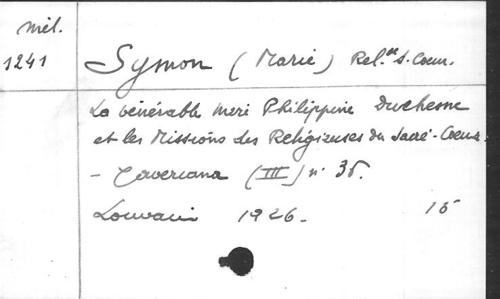 Mél.
1241
Symon (Marie) Rel.se S. Coeur.
La vénérable mère Philippine Duchesne
et les Missions des Religieuses du Sacré-Coeur.
- Xaveriana (III) n° 35.
Louvain 1926. 15